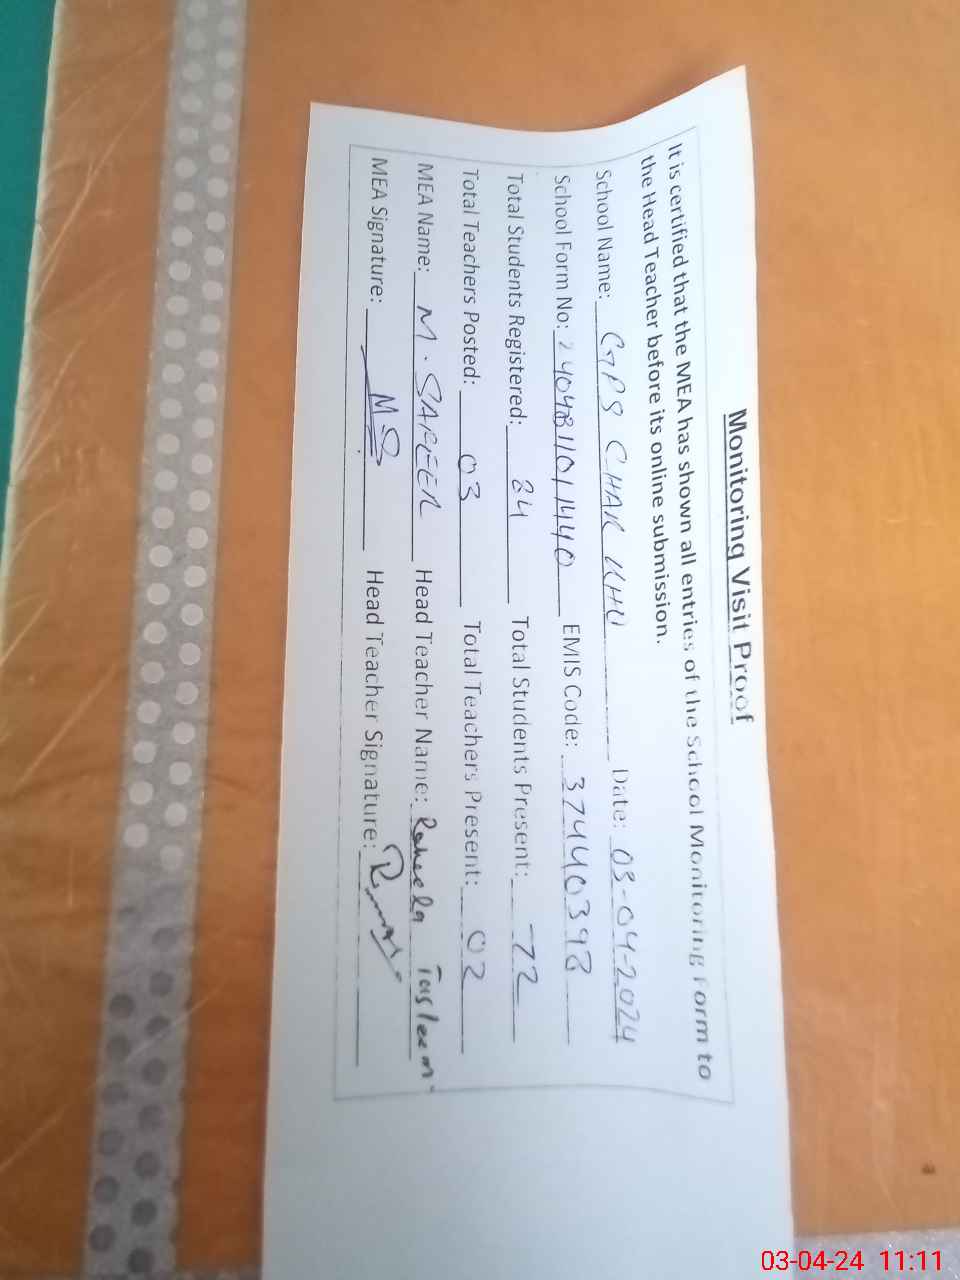 Monitoring Visit Proof
It is certified that the MEA has shown all entries of the School Monitoring Form to
the Head Teacher before its online submission.
School Name: GPS CHAK KHU Date: 03-04-2024
School Form No: 240481101440 EMIS Code: 37440398
Total Students Registered: 84 Total Students Present: 72
Total Teachers Posted: 03 Total Teachers Present: 02
MEA Name: M. SAFEER Head Teacher Name: Raheela Tasleem
MEA Signature: MS Head Teacher Signature:
03-04-24 11:11